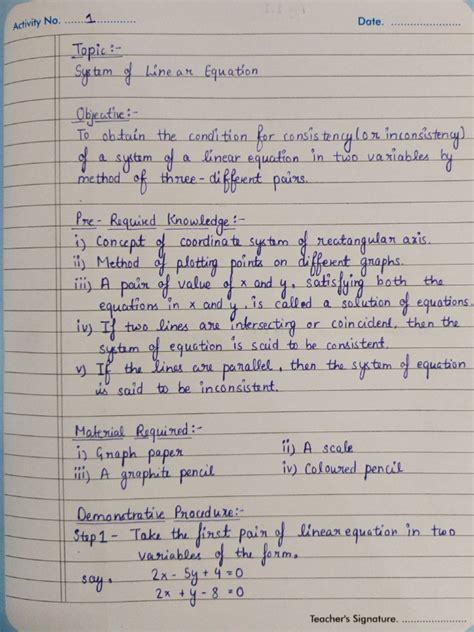 Activity No. ......1.............. Date. ....................
Topic :-
System of Linear Equation
Objective :-
To obtain the condition for consistency (or inconsistency)
of a system of a linear equation in two variables by
method of three-different pairs.
Pre-Required Knowledge :-
i) Concept of coordinate system of rectangular axis.
ii) Method of plotting points on different graphs.
iii) A pair of value of x and y, satisfying both the
equations in x and y, is called a solution of equations.
iv) If two lines are intersecting or coincident, then the
system of equation is said to be consistent.
v) If the lines are parallel, then the system of equation
is said to be inconsistent.
Material Required :-
i) Graph paper ii) A scale
iii) A graphite pencil iv) Coloured pencil
Demonstrative Procedure :-
Step 1 - Take the first pair of linear equation in two
variables of the form.
say, 2x - 5y + 4 = 0
2x + y - 8 = 0
Teacher's Signature. ....................